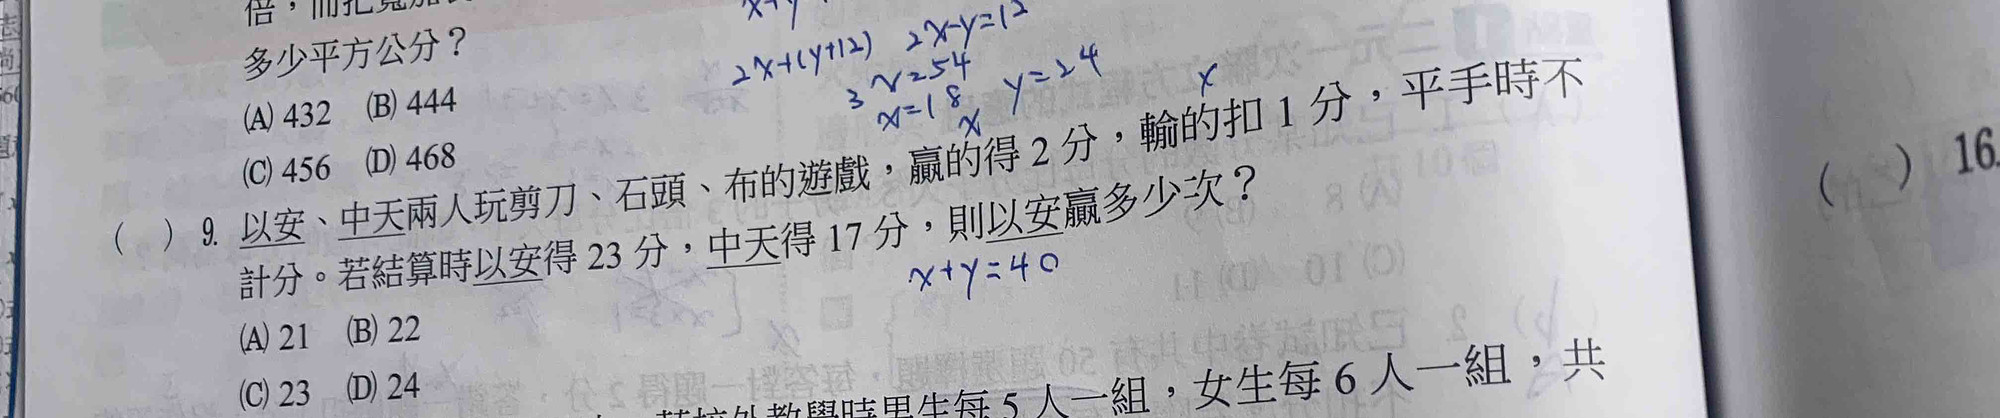 倍，而把寬
多少平方公分？
(A) 432 (B) 444
(C) 456 (D) 468
x+y
2x+(y+12) 2x-y=12
3x=54
x=18 y=24
x x
( ) 9. 以安、中天兩人玩剪刀、石頭、布的遊戲，贏的得 2 分，輸的扣 1 分，平手時不
計分。若結算時以安得 23 分，中天得 17 分，則以安贏多少次？
x+y=40
(A) 21 (B) 22
(C) 23 (D) 24
校外教學時男生每 5 人一組，女生每 6 人一組，共
( ) 16.